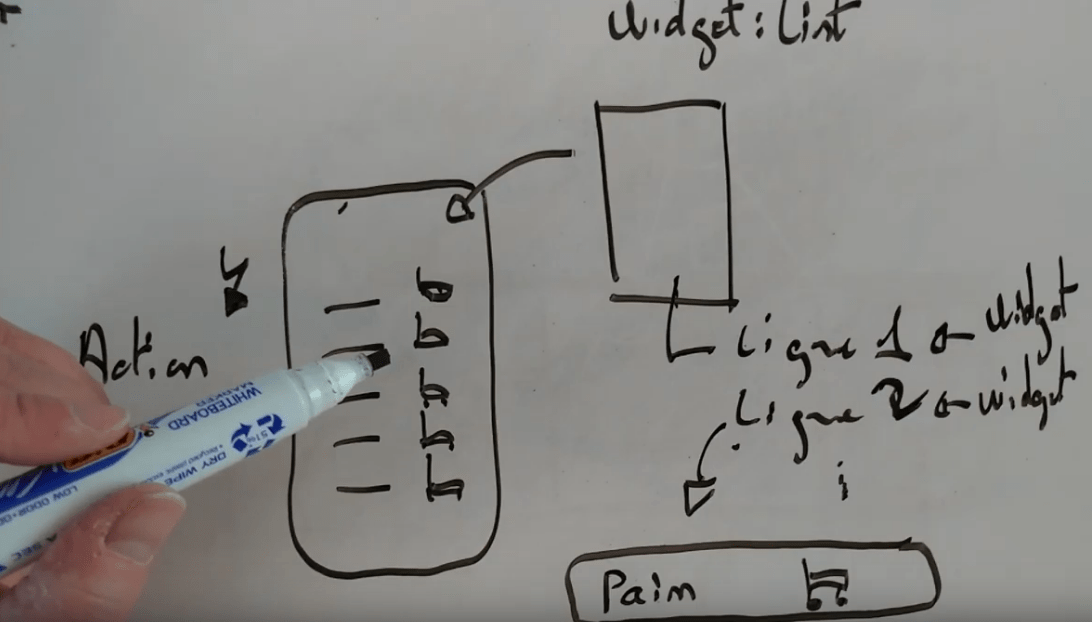 Widget: List
Ligne 1 ← Widget
Ligne 2 ← widget
Action
WHITEBOARD
MARKER
DRY WIPE
LOW ODOR
Pain